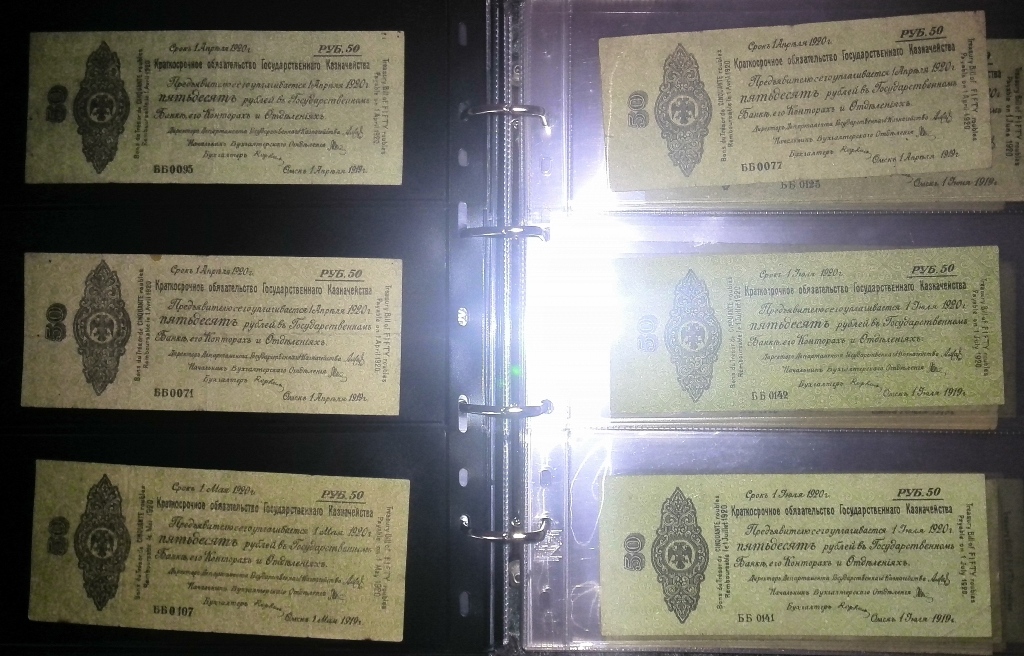 Срокъ 1 Апрѣля 1920 г.
РУБ. 50
Краткосрочное обязательство Государственнаго Казначейства
Предъявителю сего уплачивается 1 Апрѣля 1920 г.
пятьдесятъ рублей въ Государственномъ
Банкѣ, его Конторахъ и Отдѣленіяхъ.
Директоръ Департамента Государственнаго Казначейства
Начальникъ Бухгалтерскаго Отдѣленія
Бухгалтеръ
ББ 0095
Омскъ 1 Апрѣля 1919 г.
50
Bons du Trésor de CINQUANTE roubles
Remboursable le 1 Avril 1920
Treasury Bill of FIFTY roubles
Payable on 1 April 1920
Срокъ 1 Апрѣля 1920 г.
РУБ. 50
Краткосрочное обязательство Государственнаго Казначейства
Предъявителю сего уплачивается 1 Апрѣля 1920 г.
пятьдесятъ рублей въ Государственномъ
Банкѣ, его Конторахъ и Отдѣленіяхъ.
Директоръ Департамента Государственнаго Казначейства
Начальникъ Бухгалтерскаго Отдѣленія
Бухгалтеръ
ББ 0071
Омскъ 1 Апрѣля 1919 г.
50
Bons du Trésor de CINQUANTE roubles
Remboursable le 1 Avril 1920
Treasury Bill of FIFTY roubles
Payable on 1 April 1920
Срокъ 1 Мая 1920 г.
РУБ. 50
Краткосрочное обязательство Государственнаго Казначейства
Предъявителю сего уплачивается 1 Мая 1920 г.
пятьдесятъ рублей въ Государственномъ
Банкѣ, его Конторахъ и Отдѣленіяхъ.
Директоръ Департамента Государственнаго Казначейства
Начальникъ Бухгалтерскаго Отдѣленія
Бухгалтеръ
ББ 0107
Омскъ 1 Мая 1919 г.
50
Bons du Trésor de CINQUANTE roubles
Treasury Bill of FIFTY roubles
Срокъ 1 Апрѣля 1920 г.
РУБ. 50
Краткосрочное обязательство Государственнаго Казначейства
Предъявителю сего уплачивается 1 Апрѣля 1920 г.
пятьдесятъ рублей въ Государственномъ
Банкѣ, его Конторахъ и Отдѣленіяхъ.
Директоръ Департамента Государственнаго Казначейства
Начальникъ Бухгалтерскаго Отдѣленія
Бухгалтеръ
ББ 0077
Омскъ 1 Апрѣля 1919 г.
50
Bons du Trésor de CINQUANTE roubles
Remboursable le 1 Avril 1920
Treasury Bill of FIFTY roubles
Payable on 1 April 1920
ББ 0125
Омскъ 1 Іюня 1919 г.
Срокъ 1 Іюля 1920 г.
РУБ. 50
Краткосрочное обязательство Государственнаго Казначейства
Предъявителю сего уплачивается 1 Іюля 1920 г.
пятьдесятъ рублей въ Государственномъ
Банкѣ, его Конторахъ и Отдѣленіяхъ.
Директоръ Департамента Государственнаго Казначейства
Начальникъ Бухгалтерскаго Отдѣленія
Бухгалтеръ
ББ 0142
Омскъ 1 Іюля 1919 г.
50
Bons du Trésor de CINQUANTE roubles
Remboursable le 1 Juillet 1920
Treasury Bill of FIFTY roubles
Payable on 1 July 1920
Срокъ 1 Іюля 1920 г.
РУБ. 50
Краткосрочное обязательство Государственнаго Казначейства
Предъявителю сего уплачивается 1 Іюля 1920 г.
пятьдесятъ рублей въ Государственномъ
Банкѣ, его Конторахъ и Отдѣленіяхъ.
Директоръ Департамента Государственнаго Казначейства
Начальникъ Бухгалтерскаго Отдѣленія
Бухгалтеръ
ББ 0141
Омскъ 1 Іюля 1919 г.
50
Bons du Trésor de CINQUANTE roubles
Remboursable le 1 Juillet 1920
Treasury Bill of FIFTY roubles
Payable on 1 July 1920